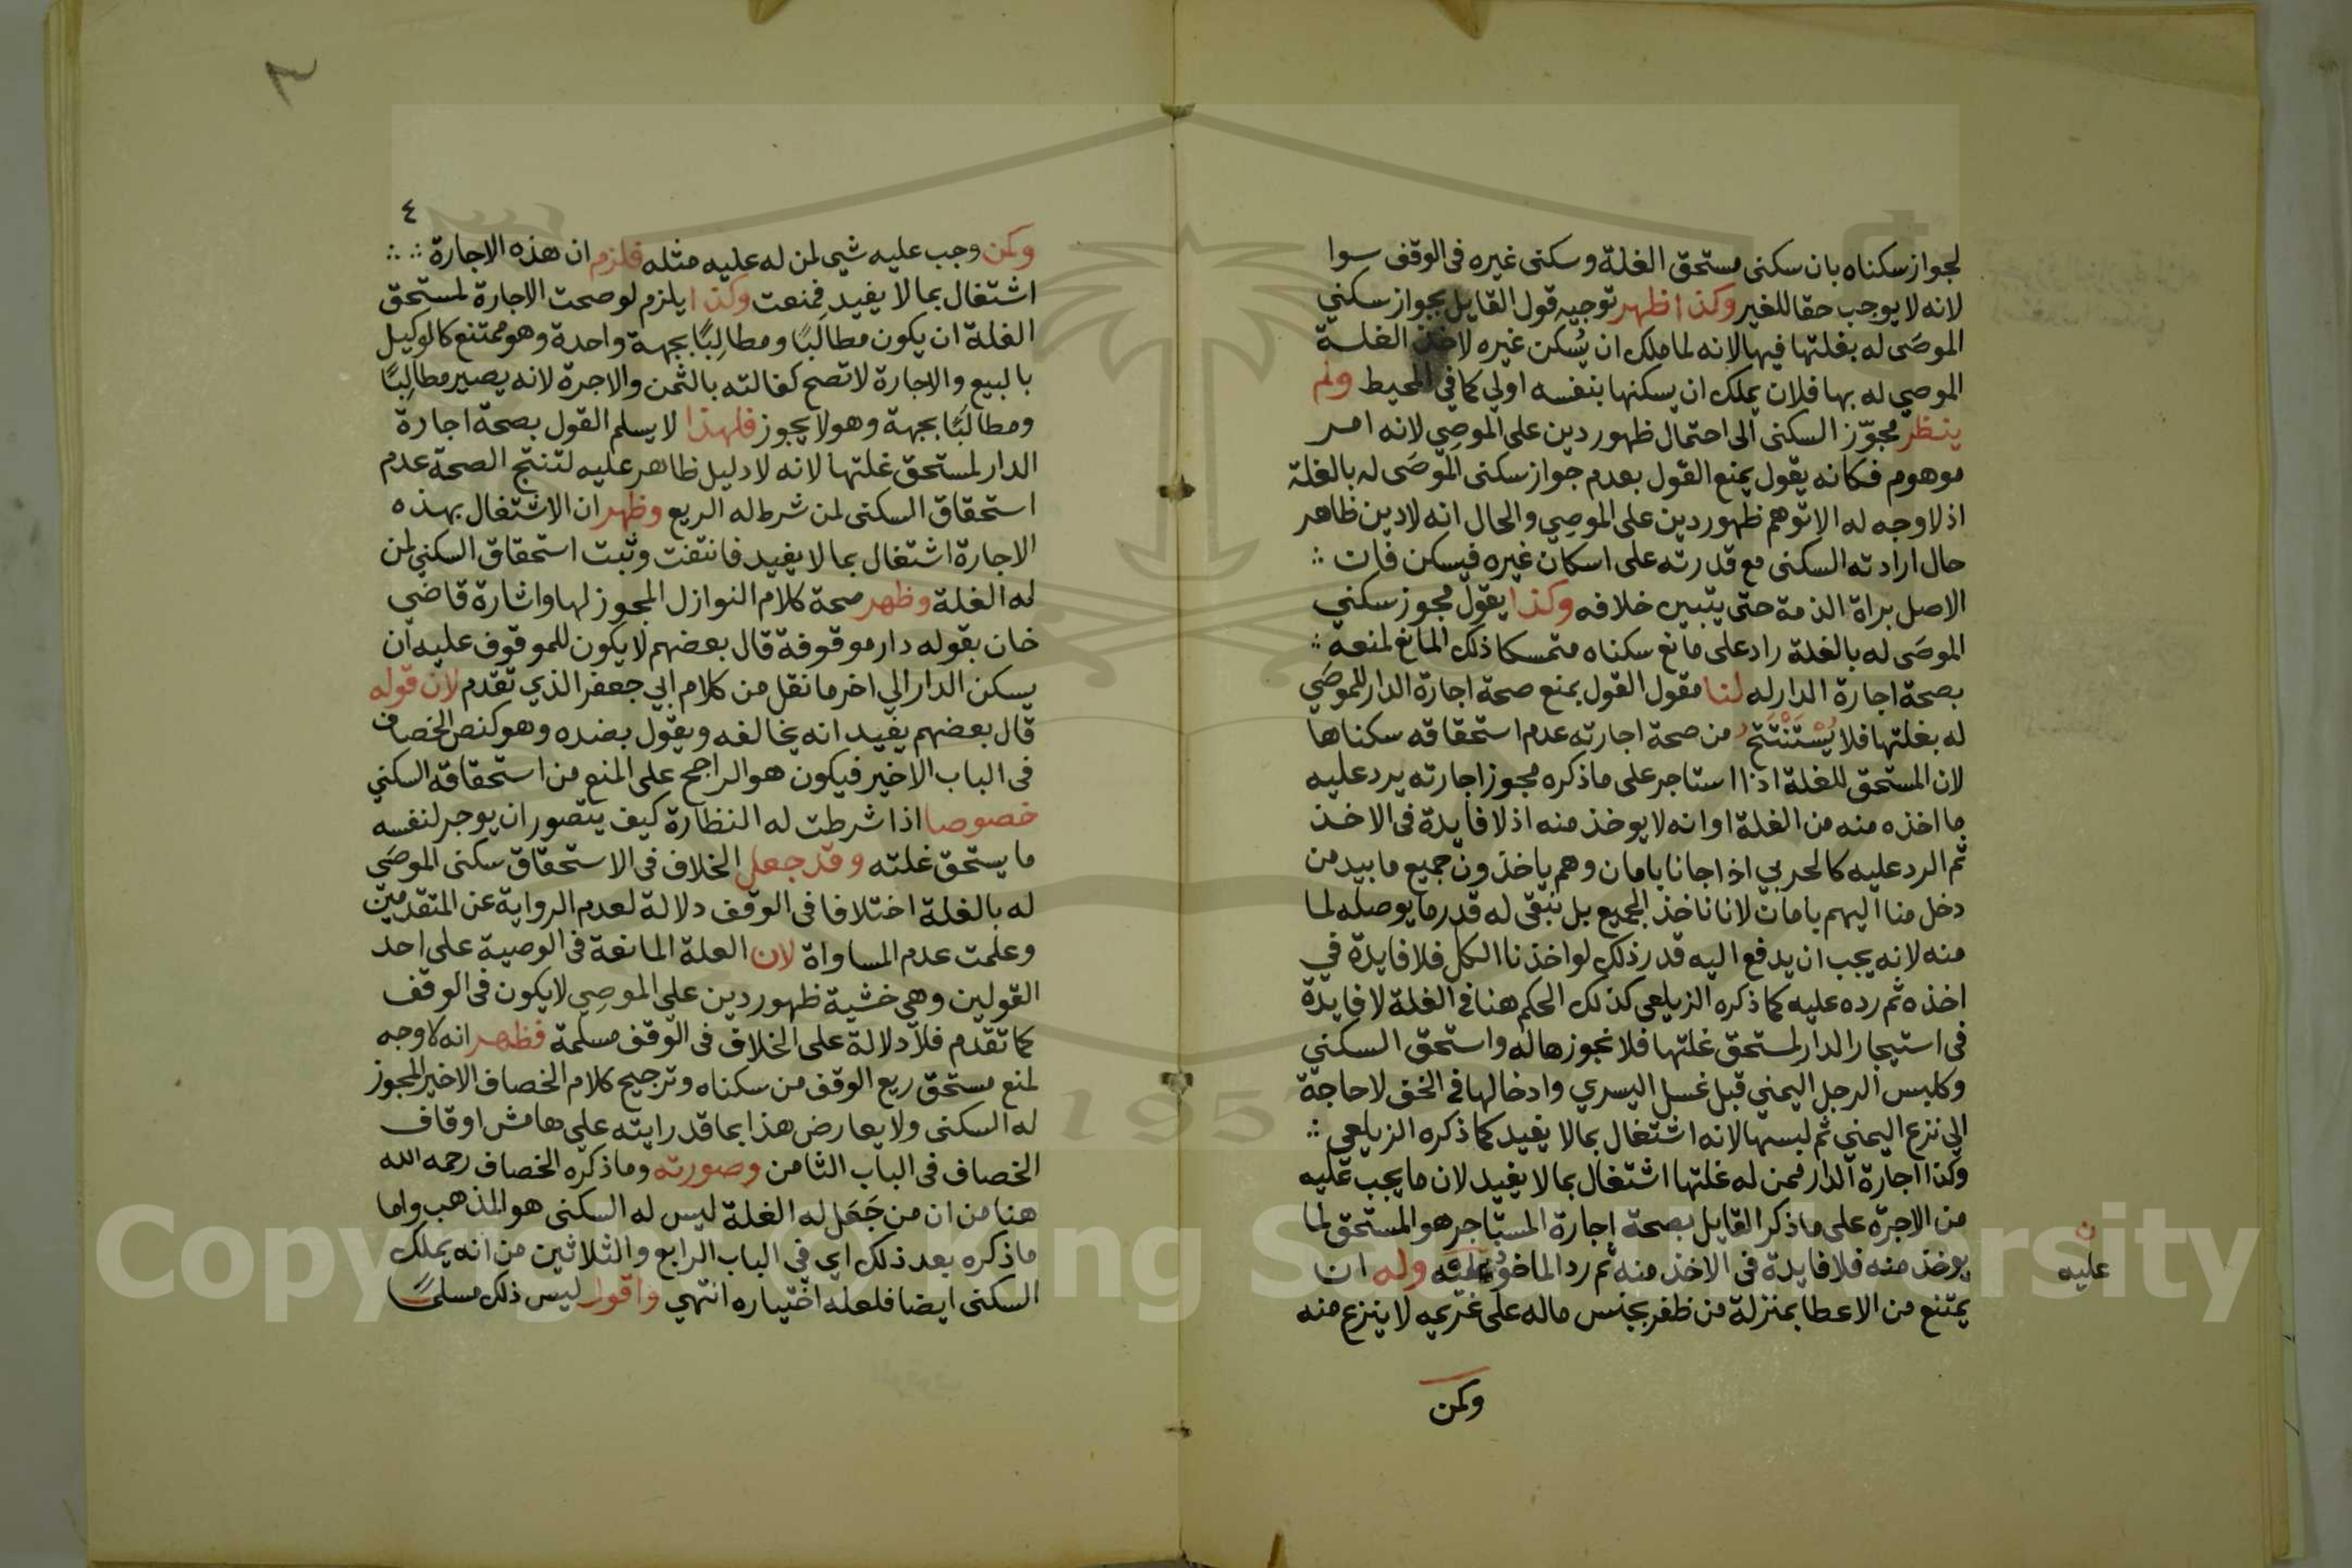 لجواز سكناه بان سكنى مستحق الغلة وسكنى غيره فى الوقف سوا
لانه لا يوجب حقا للغير وكذا ظهر توجيه قول القايل بجواز سكني
الموصَى له بغلتها فيها لانه لما ملك ان يُسكن غيره لاخذ الغلة
الموصي له بها فلان يملك ان يسكنها بنفسه اولي كما في المحيط ولم
ينظر مجوّز السكنى الى احتمال ظهور دين على الموصِي لانه امر
موهوم فكانه يقول يمنع القول بعدم جواز سكنى الموصَى له بالغلة
اذ لا وجه له الا توهم ظهور دين على الموصِي والحال انه لا دين ظاهر
حال ارادته السكنى مع قدرته على اسكان غيره فيسكن فان ∴
الاصل براة الذمة حتى يتبين خلافه وكذا يقول مجوز سكني
الموصَى له بالغلة راد على مانع سكناه متمسكا ذلك المانع لمنعه ∴
بصحة اجارة الدار له لنا مقول القول بمنع صحة اجارة الدار للموصَي
له بغلتها فلا يُسْتَنْتَجُ من صحة اجارته عدم استحقاقه سكناها
لان المستحق للغلة اذا استاجر على ما ذكره مجوز اجارته يرد عليه
ما اخذه منه من الغلة او انه لا يوخذ منه اذ لا فايدة فى الاخذ
ثم الرد عليه كالحربي اذا جانا بامان وهم ياخذون جميع ما بيد من
دخل منا اليهم بامان لانا ناخذ الجميع بل نبقى له قدر ما يوصله لما
منه لانه يجب ان يدفع اليه قدر ذلك لو اخذنا الكل فلا فايدة في
اخذه ثم رده عليه كما ذكره الزيلعى كذلك الحكم هنا فى الغلة لا فايدة
فى استيجار الدار لمستحق غلتها فلا نجوزها له واستحق السكني
وكلبس الرجل اليمني قبل غسل اليسري وادخالها فى الخف لا حاجة
الي نزع اليمني ثم لبسها لانه اشتغال بما لا يفيد كما ذكره الزيلعي ∴
وكذا اجارة الدار ممن له غلتها اشتغال بما لا يفيد لان ما يجب عليه
من الاجرة على ما ذكر القايل بصحة اجارة المستاجر هو المستحق لما
يوخذ منه فلا فايدة فى الاخذ منه ثم رد الماخوذ وله ان
ن
عليه
يمتنع من الاعطا بمنزلة من ظفر بجنس ماله على غريمه لا ينزع منه
وكمن
٤
وكمن وجب عليه شي لمن له عليه مثله فلزم ان هذه الاجارة ∴ ∴
اشتغال بما لا يفيد فمنعت وكذا يلزم لو صحت الاجارة لمستحق
الغلة ان يكون مطالَبًا ومطالِبًا بجهة واحدة وهو ممتنع كالوكيل
بالبيع والاجارة لا تصح كفالته بالثمن والاجرة لانه يصير مطالِبًا
ومطالَبًا بجهة وهو لا يجوز فلهذا لا يسلم القول بصحة اجارة
الدار لمستحق غلتها لانه لا دليل ظاهر عليه لتنتج الصحة عدم
استحقاق السكنى لمن شرط له الريع وظهر ان الاشتغال بهذه
الاجارة اشتغال بما لا يفيد فانتفت وثبت استحقاق السكني لمن
له الغلة وظهر صحة كلام النوازل المجوز لها واشارة قاضي
خان بقوله دار موقوفة قال بعضهم لا يكون للموقوف عليه ان
يسكن الدار الي اخر ما نقل من كلام ابي جعفر الذي تقدم لان قوله
قال بعضهم يفيد انه يخالفه ويقول بضده وهو كنص الخصاف
فى الباب الاخير فيكون هو الراجح على المنع من استحقاقه السكني
خصوصا اذا شرطت له النظارة كيف يتصور ان يوجر لنفسه
ما يستحق غلته وقد جعل الخلاف فى الاستحقاق سكنى الموصَي
له بالغلة اختلافا فى الوقف دلالة لعدم الرواية عن المتقدمين
وعلمت عدم المساواة لان العلة المانعة فى الوصية على احد
القولين وهي خشية ظهور دين على الموصِي لا يكون فى الوقف
كما تقدم فلا دلالة على الخلاف فى الوقف مسلمة فظهر انه لا وجه
لمنع مستحق ريع الوقف من سكناه وترجيح كلام الخصاف الاخير المجوز
له السكنى ولا يعارض هذا بما قد رايته علي هامش اوقاف
الخصاف فى الباب الثامن وصورته وما ذكره الخصاف رحمه الله
هنا من ان من جَعَل له الغلة ليس له السكنى هو المذهب واما
ما ذكره بعد ذلك اي في الباب الرابع والثلاثين من انه يملك
السكنى ايضا فلعله اختياره انتهي واقول ليس ذلك مسلمًا
Copyright © King Saud University
1957